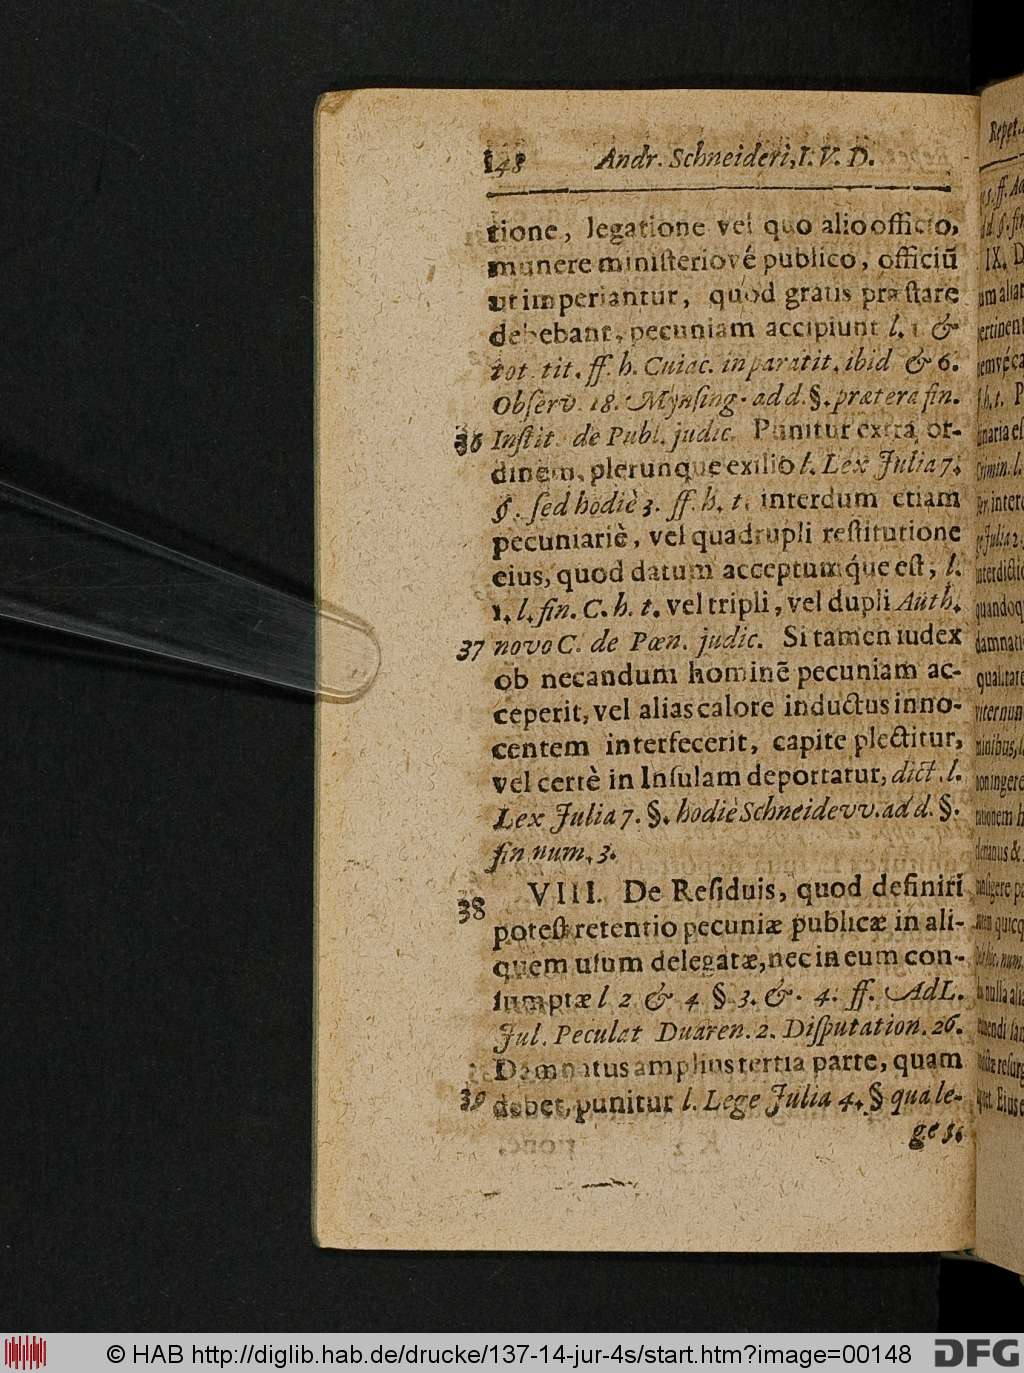 148 Andr. Schneideri, I. V. D.
tione, legatione vel quo alio officio,
munere ministeriové publico, officiũ
ut imperiantur, quod gratis præstare
debebant, pecuniam accipiunt l. 1 &
tot. tit. ff. h. Cuiac. in paratit. ibid & 6.
Observ. 18. Mynsing. ad d. §. præterea fin.
36 Instit. de Publ. judic. Punitur extra or-
dinem, plerunque exilio l. Lex Julia 7.
§. sed hodiè 3. ff. h. t. interdum etiam
pecuniariè, vel quadrupli restitutione
eius, quod datum acceptumq́ue est, l.
1. l. fin. C. h. t. vel tripli, vel dupli Auth.
37 novo C. de Pœn. judic. Si tamen iudex
ob necandum hominẽ pecuniam ac-
ceperit, vel alias calore inductus inno-
centem interfecerit, capite plectitur,
vel certè in Insulam deportatur, dict. l.
Lex Julia 7. §. hodiè Schneidevv. ad d. §.
fin num. 3.
38 VIII. De Residuis, quod definiri
potest retentio pecuniæ publicæ in ali-
quem usum delegatæ, nec in eum con-
sumptæ l 2 & 4 § 3. &. 4. ff. Ad L.
Jul. Peculat Duaren. 2. Disputation. 26.
Damnatus amplius tertia parte, quam
39 debet, punitur l. Lege Julia 4. § qua le-
ge 5.
Repet.
IX. D
um aliar
pertinent
damnati
qualitate
non ingere
rationem h
nulla alia
Eius e
© HAB http://diglib.hab.de/drucke/137-14-jur-4s/start.htm?image=00148
DFG